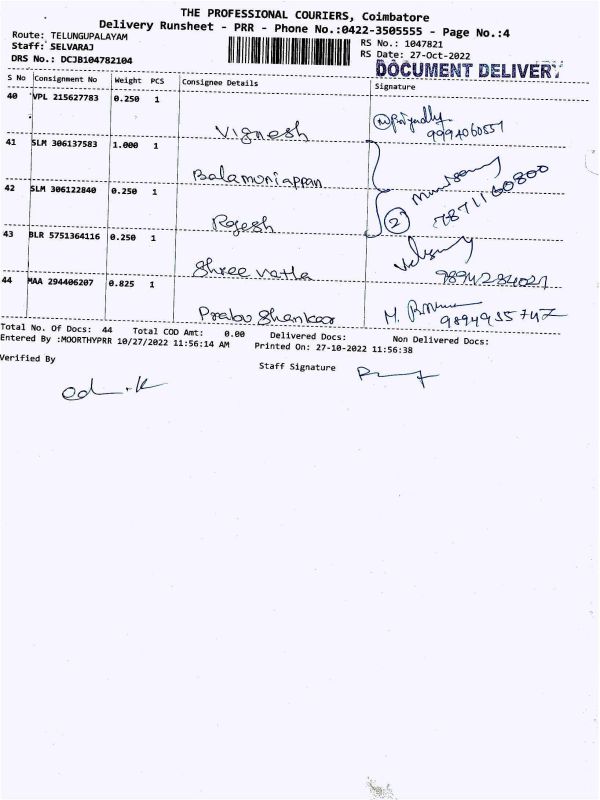 THE PROFESSIONAL COURIERS, Coimbatore
Delivery Runsheet - PRR - Phone No.:0422-3505555 - Page No.:4
Route: TELUNGUPALAYAM
RS No.: 1047821
Staff: SELVARAJ
RS Date: 27-Oct-2022
DRS No.: DCJB104782104
DOCUMENT DELIVERY
S No Consignment No Weight PCS Consignee Details Signature
40 VPL 215627783 0.250 1
Vignesh
9994060557
41 SLM 306137583 1.000 1
Balamuniappan
42 SLM 306122840 0.250 1
Rajesh
2
7871160800
43 BLR 5751364116 0.250 1
Shree vatha
9894234021
44 MAA 294406207 0.825 1
Prabu Shankar
9894935747
Total No. Of Docs: 44 Total COD Amt: 0.00 Delivered Docs: Non Delivered Docs:
Entered By :MOORTHYPRR 10/27/2022 11:56:14 AM Printed On: 27-10-2022 11:56:38
Verified By
Staff Signature